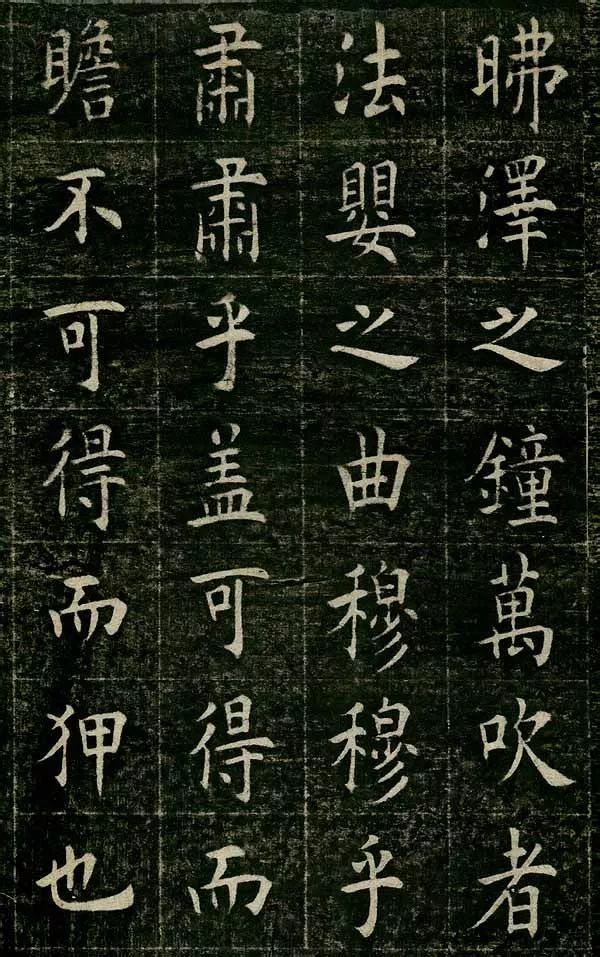 昲澤之鐘萬吹者
法嬰之曲穆穆乎
肅肅乎盖可得而
瞻不可得而狎也